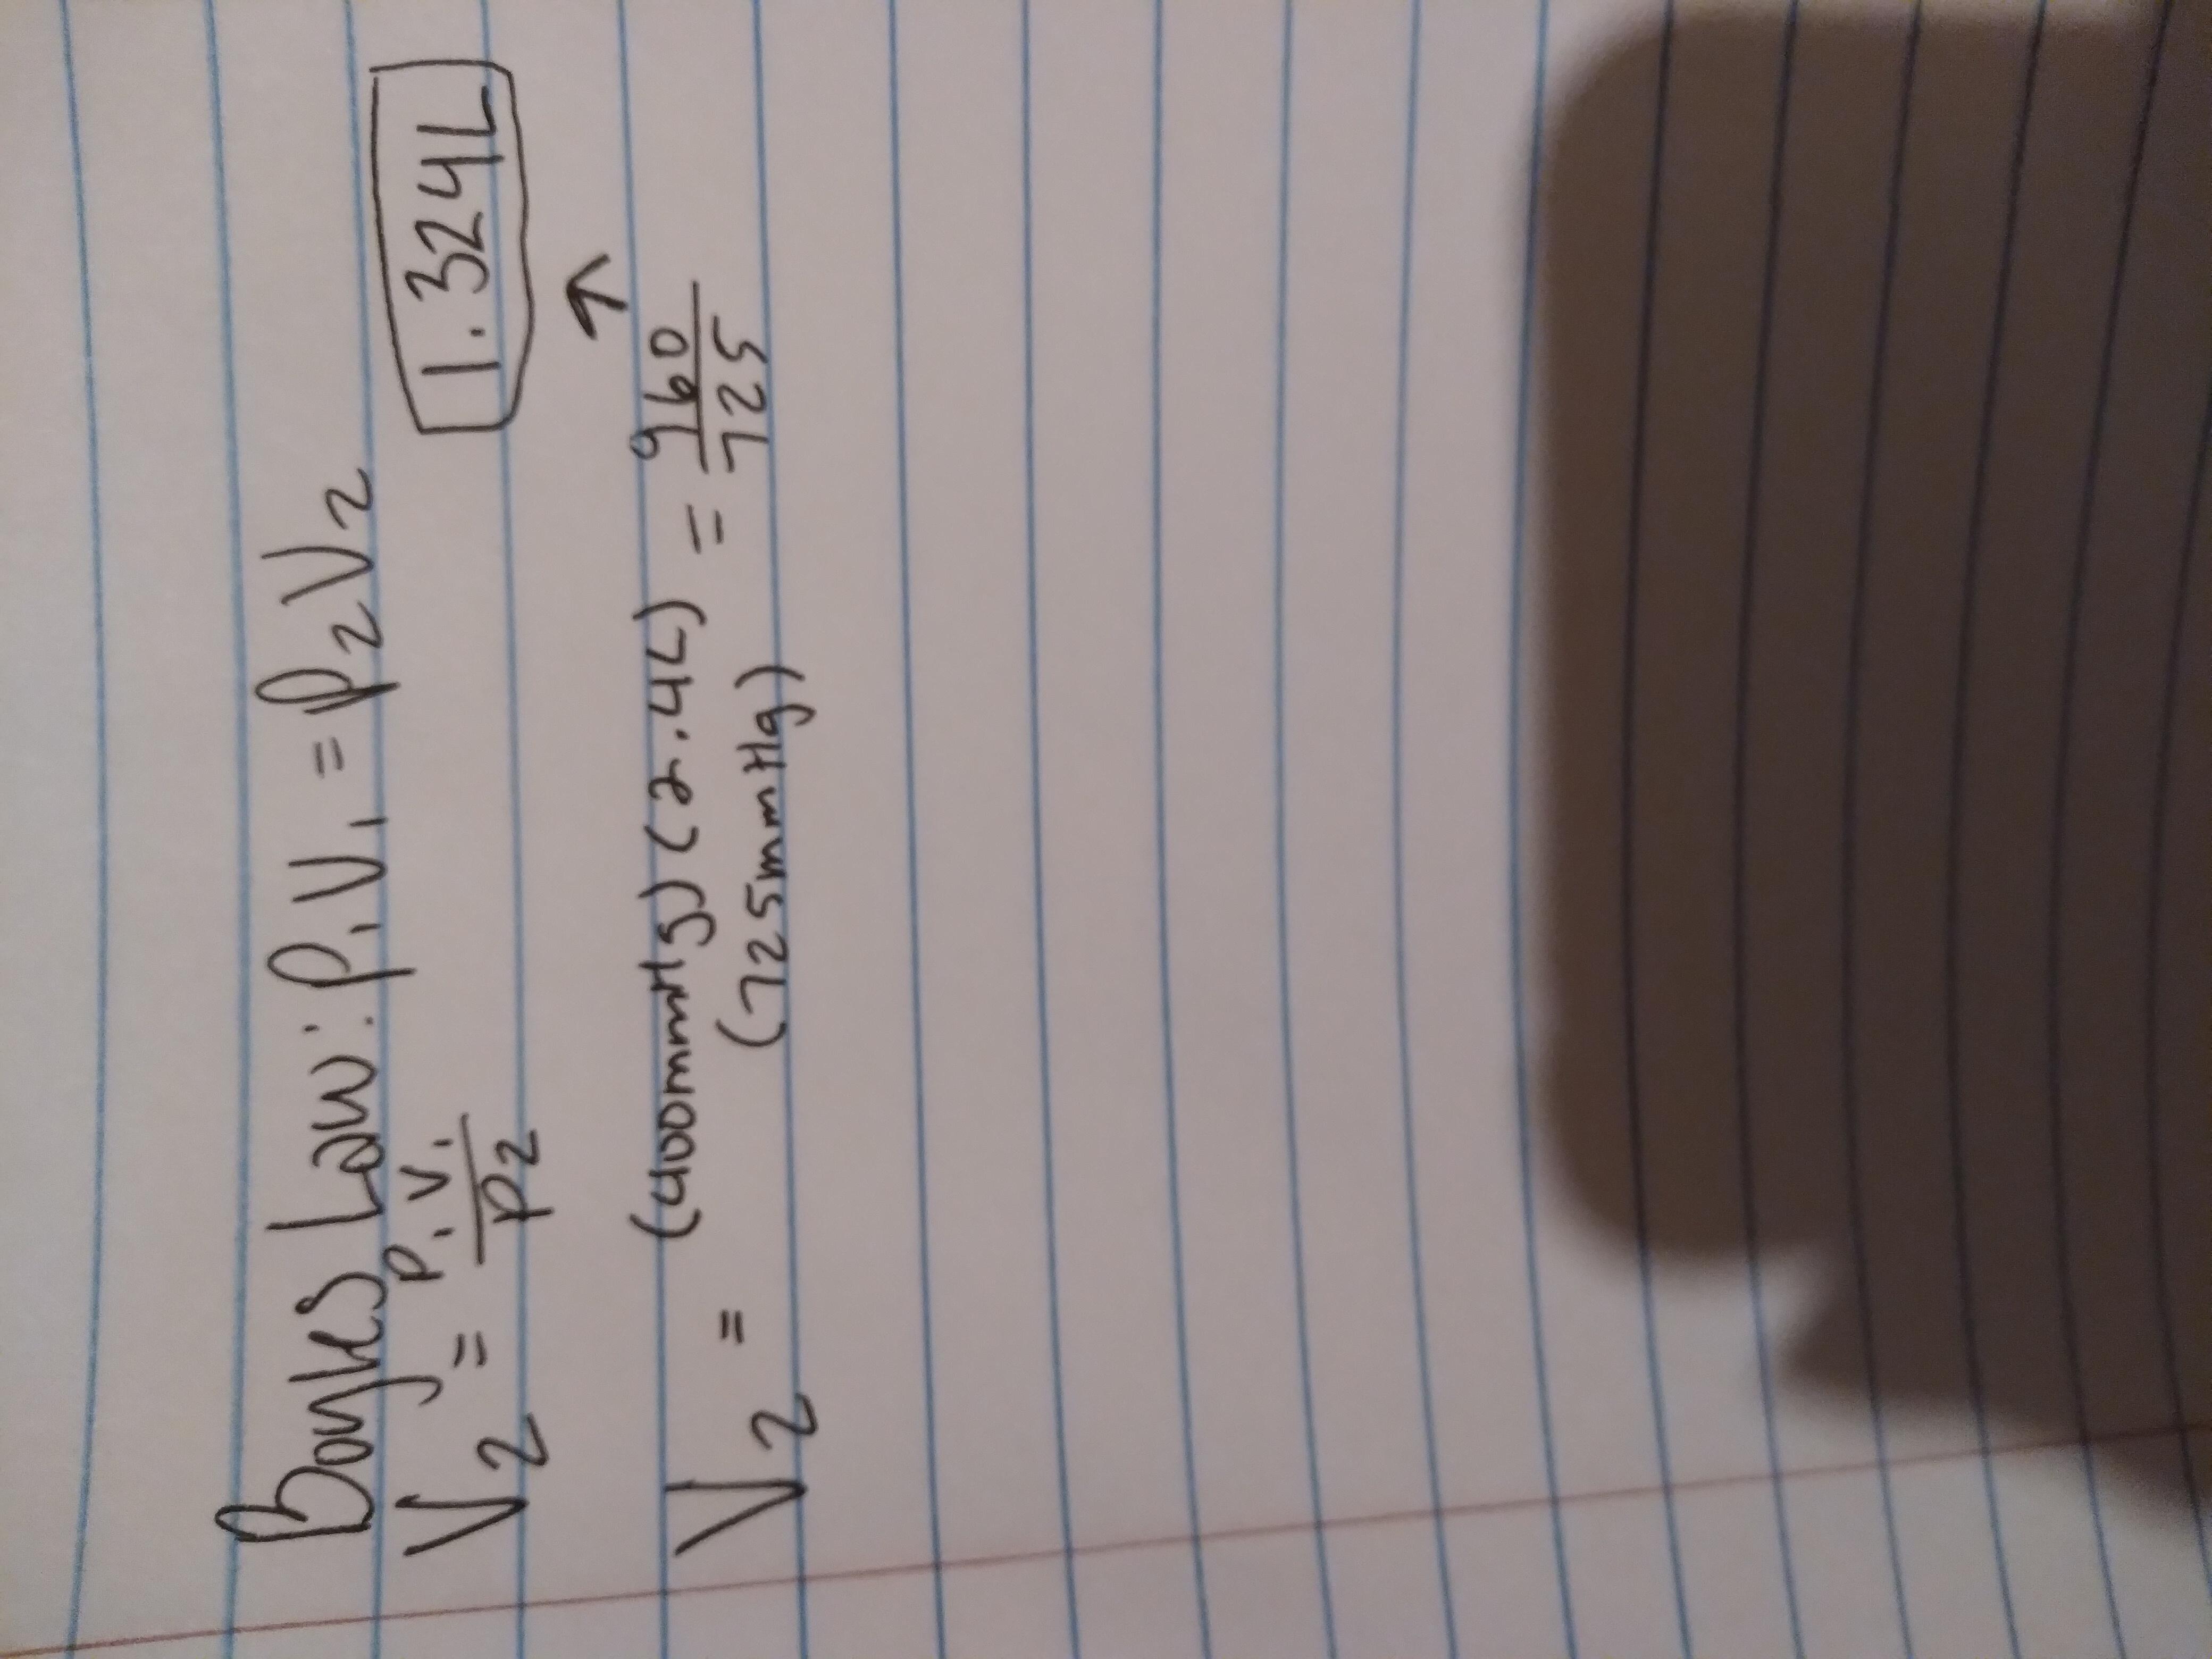 Boyles Law: P₁V₁ = P₂V₂
V₂ = P₁V₁ / P₂
1.324L
V₂ = (400mmHg)(2.4L) / (725mmHg) = 960 / 725 ↑